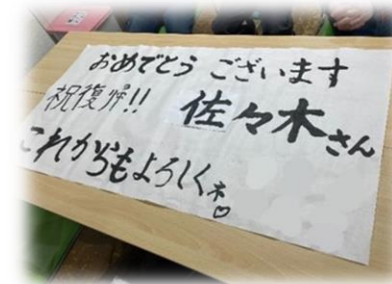 おめでとう ございます
祝復帰!! 佐々木さん
これからもよろしくネ♡